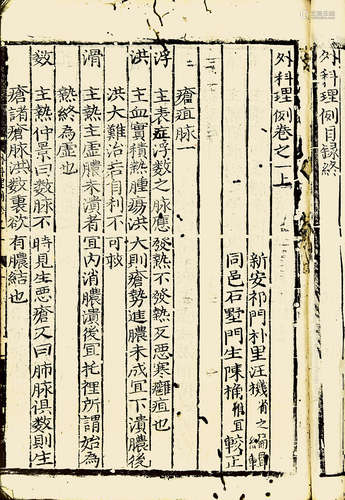 外科理例目録終
外科理例卷之一上
新安祁門朴里汪機省之編輯
同邑石墅門生陳桷惟宜較正
瘡疽脉一
浮 主表症浮数之脉應發熱不發熱反惡寒癰疽也
洪 主血實積熱腫瘍洪大則瘡勢進膿未成宜下潰膿後
洪大難治若自利不可救
滑 主熱主虚膿未潰者宜内消膿潰後宜托裡所謂始為
熱終為虚也
数 主熱仲景曰数脉不時見生惡瘡又曰肺脉俱数則生
瘡諸瘡脉洪数裏欲有膿結也